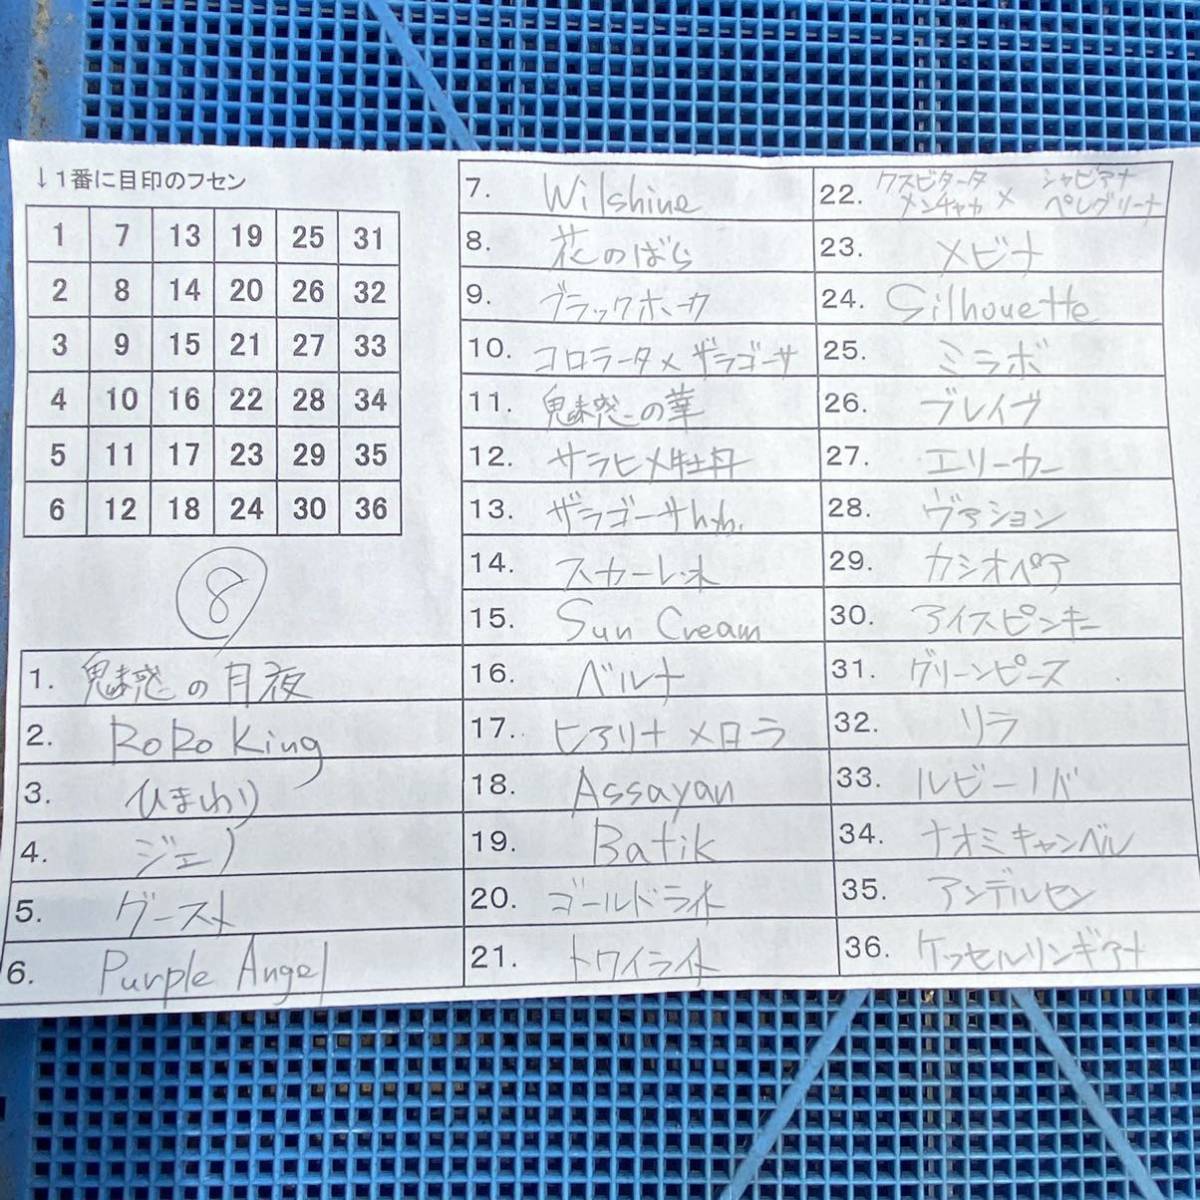 ↓1番に目印のフセン
1 7 13 19 25 31
2 8 14 20 26 32
3 9 15 21 27 33
4 10 16 22 28 34
5 11 17 23 29 35
6 12 18 24 30 36
8
1. 魅惑の月夜
2. RoRo King
3. ひまわり
4. ジェノ
5. グースト
6. Purple Angel
7. Wilshine
8. 花のばら
9. ブラックボーカ
10. コロラータ×ザラゴーサ
11. 魅惑の華
12. サラヒメ牡丹
13. ザラゴーサhyb.
14. スカーレット
15. Sun Cream
16. ベルナ
17. ピアリナ×ローラ
18. Assayan
19. Batik
20. ゴールドライト
21. トワイライト
22. クスピダータ メンチャカ × シャビアナ ペレグリーナ
23. メビナ
24. Silhouette
25. ミラボ
26. ブレイブ
27. エリーカー
28. ヴァション
29. カシオペア
30. アイスピンキー
31. グリーンピース
32. リラ
33. ルビーノバー
34. ナオミキャンベル
35. アンデルセン
36. ケッセルリンギアナ